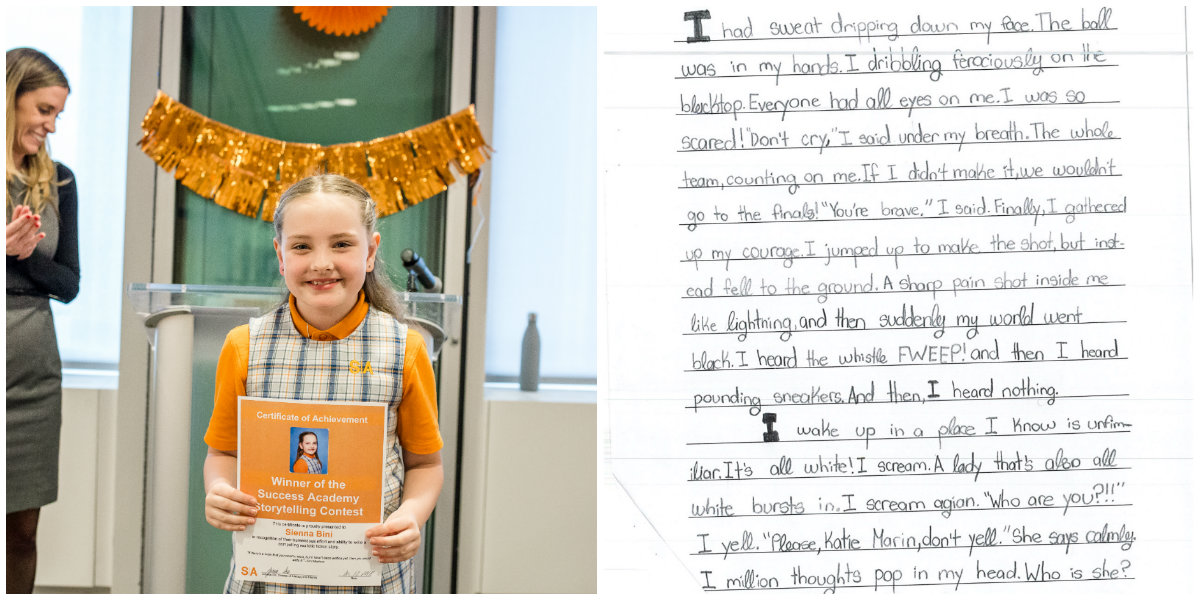 SA
Certificate of Achievement
Winner of the
Success Academy
Storytelling Contest
This certificate is proudly presented to
Sienna Bini
SA
I had sweat dripping down my face. The ball
was in my hands. I dribbling ferociously on the
blacktop. Everyone had all eyes on me. I was so
scared! "Don't cry," I said under my breath. The whole
team, counting on me. If I didn't make it, we wouldn't
go to the finals! "You're brave." I said. Finally, I gathered
up my courage. I jumped up to make the shot, but inst-
ead fell to the ground. A sharp pain shot inside me
like lightning, and then suddenly my world went
black. I heard the whistle FWEEP! and then I heard
pounding sneakers. And then, I heard nothing.
I wake up in a place I know is unfim-
iliar. It's all white! I scream. A lady that's also all
white bursts in. I scream agian. "Who are you?!!"
I yell. "Please, Katie Marin, don't yell." She says calmly.
I million thoughts pop in my head. Who is she?